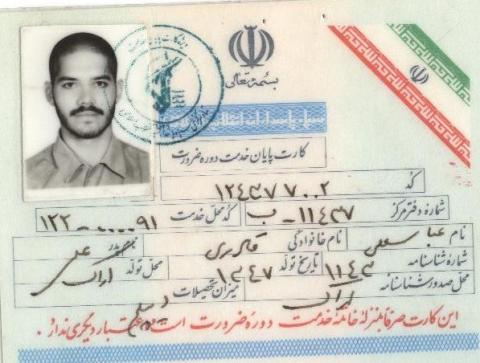 بسمه تعالی
سپاه پاسداران انقلاب
کارت پایان خدمت دوره ضرورت
کد ۱۲۴۳۷۷۰۰۲
شماره دفتر مرکز ۱۱۴۳۷ - ب کد محل خدمت
نام عباسعلی نام خانوادگی نام پدر علی
شماره شناسنامه ۱۱۴۳ تاریخ تولد ۱۳۴۷ محل تولد اراک
محل صدور شناسنامه اراک میزان تحصیلات دیپلم
این کارت صرفا بمنزله خاتمه خدمت دوره ضرورت است و اعتبار دیگری ندارد.